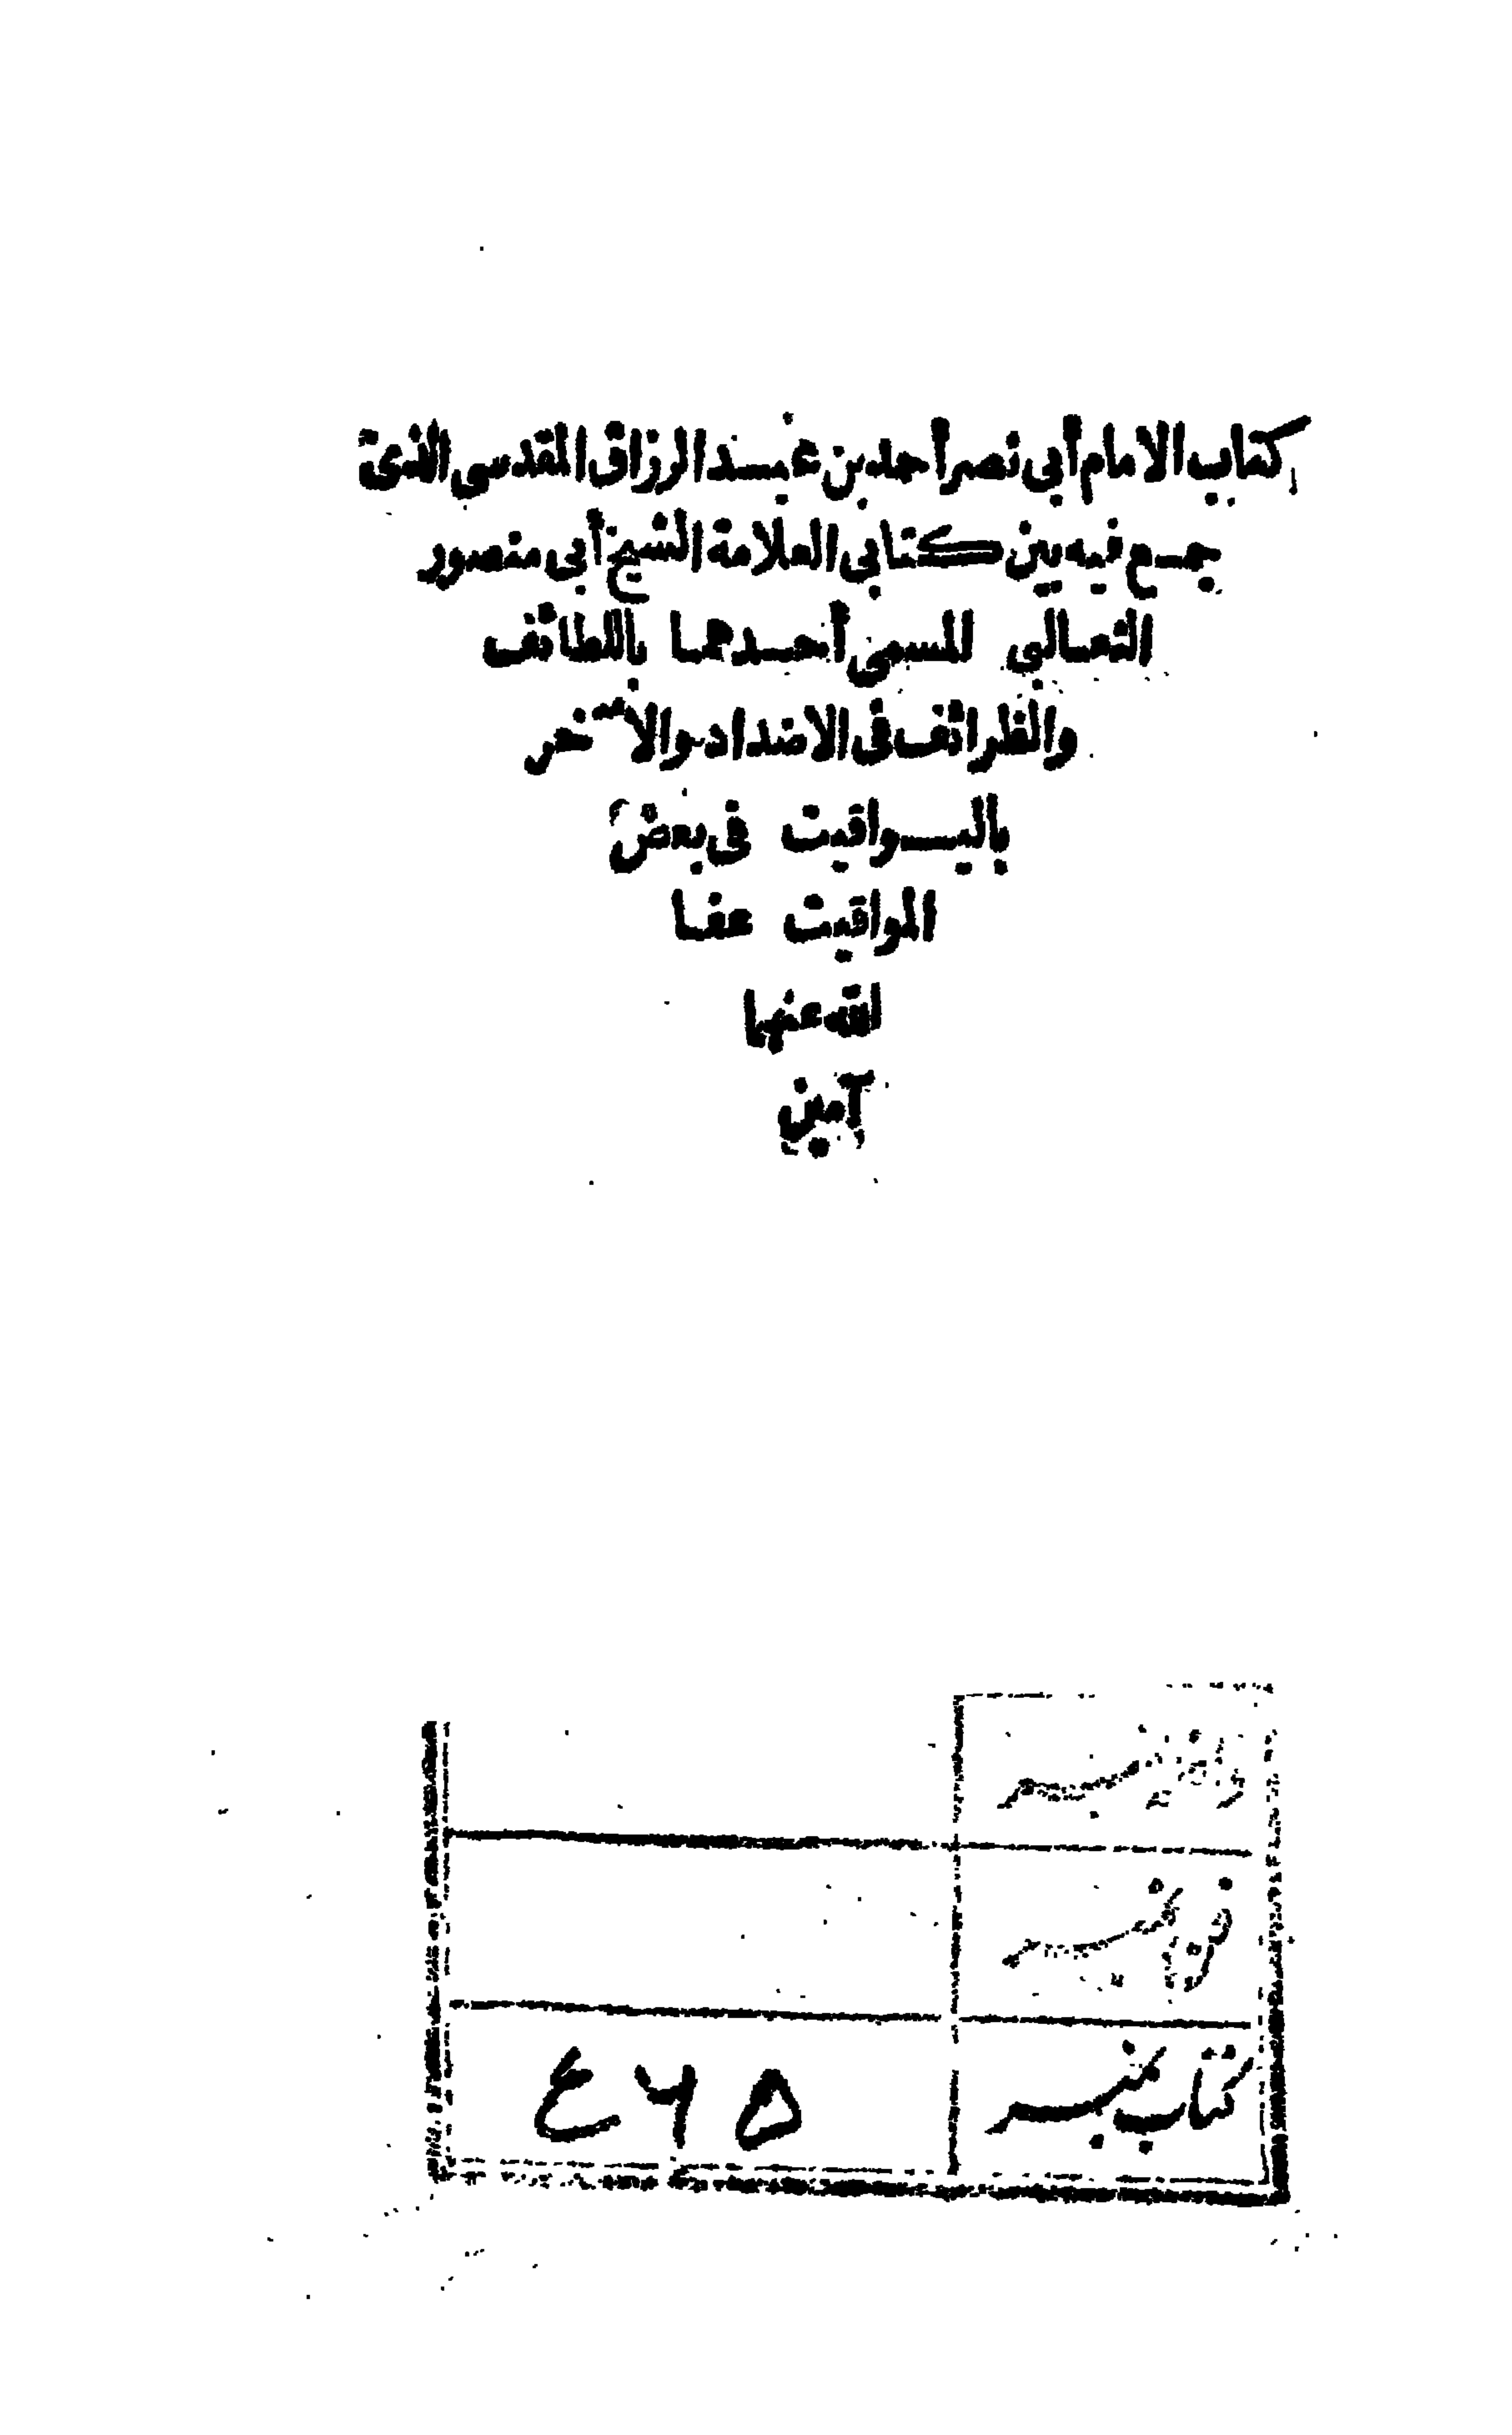 كتاب الامام أبي نصر أحمد بن عبد الرزاق المقدسي الذي
جمع فيه بين كتابي العلامة الشيخ أبي منصور
الثعالبي المسمى أحدهما باللطائف
والظرائف في الاضداد والآخر
باليواقيت في بعض
المواقيت عفا
الله عنهما
آمين
فن نمبر
کتاب نمبر ۵۶۴